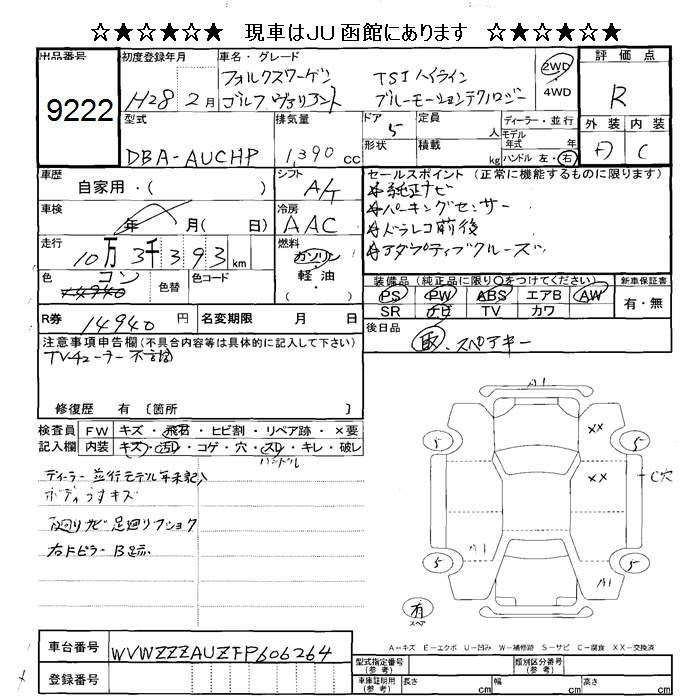 ☆★☆★☆★ 現車はJU函館にあります ☆★☆★☆★
出品番号 初度登録年月 車名・グレード 評価点
9222 H28 2月 フォルクスワーゲン TSI ハイライン 2WD R
ゴルフ ヴァリアント ブルーモーションテクノロジー 4WD
型式 排気量 ドア 定員 ディーラー・並行 外装 内装
DBA-AUCHP 1,390 CC 5 人 モデル年式 年
形状 積載 kg ハンドル 左・右 C
車歴 シフト セールスポイント(正常に機能するものに限ります)
自家用・( ) A/T 純正ナビ
車検 冷房 パーキングセンサー
年 月( 日) AAC ドラレコ前後
走行 燃料 アダプティブクルーズ
10万3千393km ガソリン
色 コン 色替 色コード 軽・油 装備品(純正品に限り○をつけてください) 新車保証書
14940 ・( ) PS PW ABS エアB AW 有・無
SR ナビ TV カワ
R券 14940円 名変期限 月 日 後日品
取、スペアキー
注意事項申告欄(不具合内容等は具体的に記入して下さい)
TVチューナー
修復歴 有〔箇所 〕
検査員 FW キズ・飛石・ヒビ割・リペア跡・×要
記入欄 内装 キズ・汚れ・コゲ・穴・スレ・キレ・破レ
ハンドル
ディーラー並行モデル年未記入
ボディうすキズ
下廻りサビ 足廻りフショク
右Fピラー B跡
A1
XX
5 5
XX
C穴
A1
5 5
A1
有
スペア
A-キズ E-エクボ U-凹み W-補修跡 S-サビ C-腐食 XX-交換済
車台番号 WVWZZZAUZFP606264
登録番号
型式指定番号(参考) 類別区分番号(参考)
車庫証明用(参考) 長さ cm 幅 cm 高さ cm